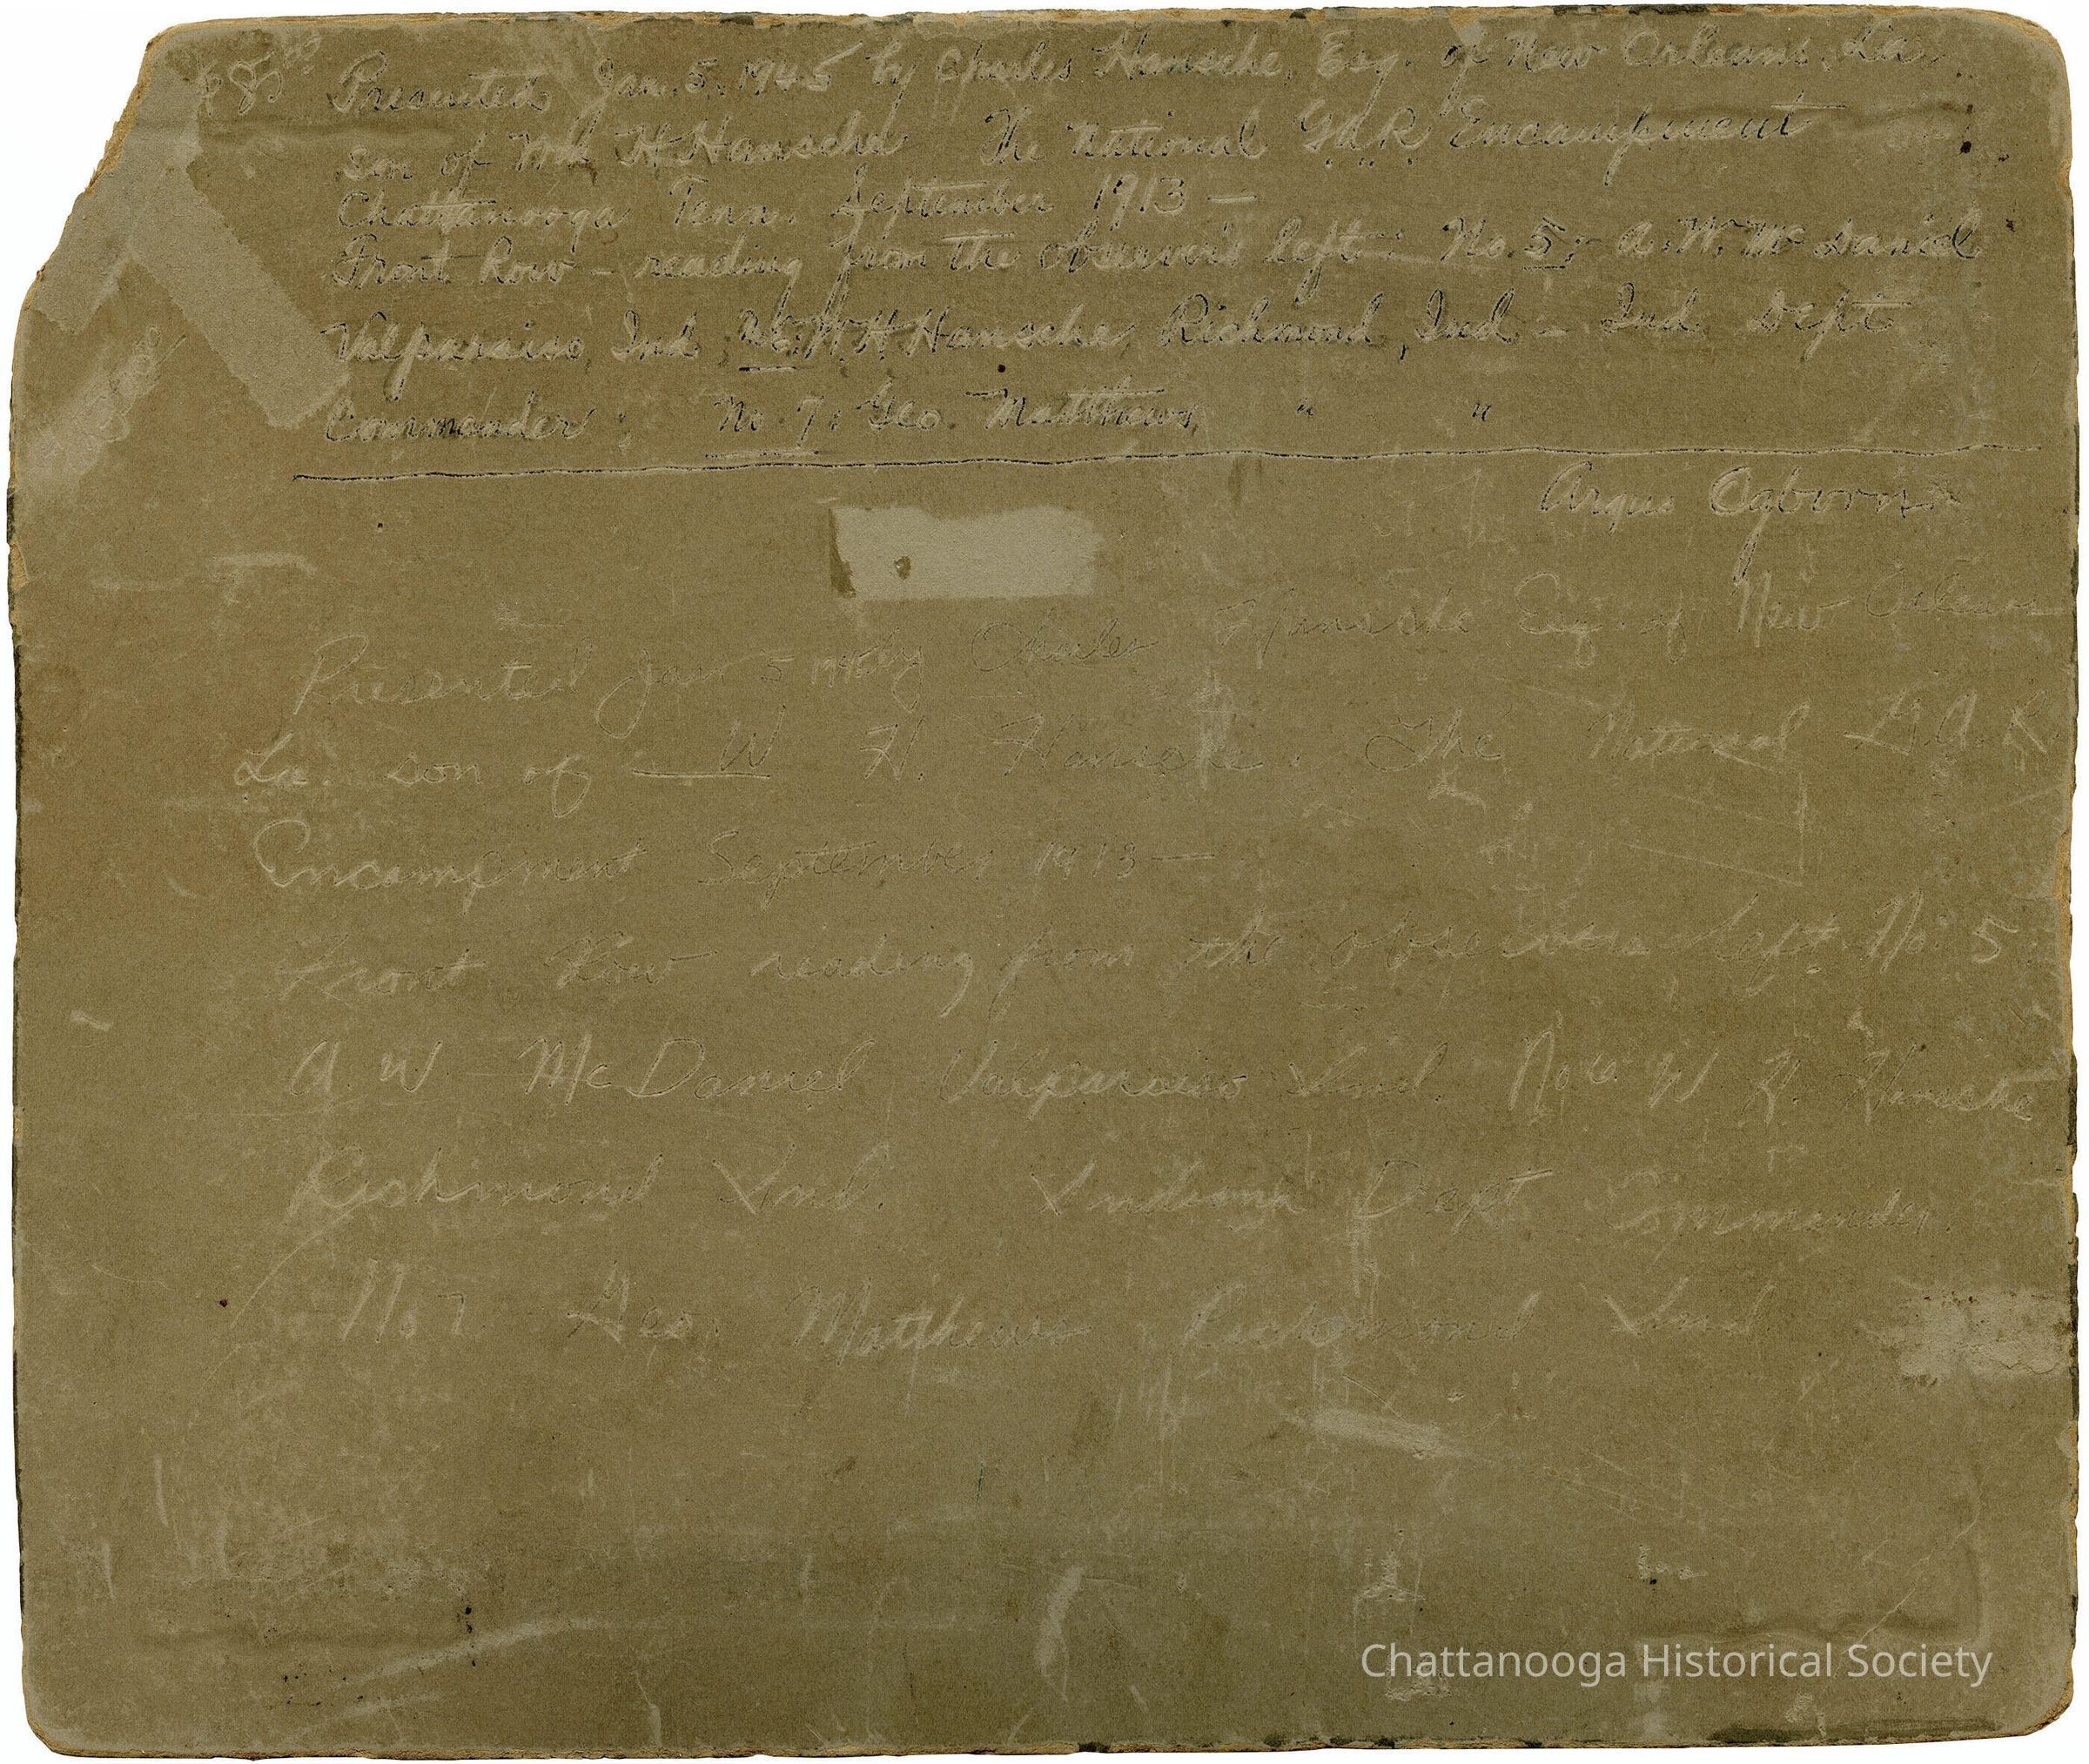 Presented Jan. 5, 1945 by Charles Hansche, Esq. of New Orleans, La.
son of Wm H Hansche The National G.A.R. Encampment
Chattanooga Tenn. September 1913 —
Front Row – reading from the observer's left: No. 5: A. W. McDaniel
Valparaiso, Ind; No. 6. W H Hansche, Richmond, Ind – Ind. Dept
Commander; No. 7: Geo. Matthews, " "
Argus Ogborn
Presented Jan 5 1945 by Charles Hansche Esq. of New Orleans
La. son of W H. Hansche. The National G.A.R.
Encampment September 1913 —
Front Row reading from the observers left No. 5
A. W McDaniel, Valparaiso Ind. No 6. W H. Hansche
Richmond Ind. Indiana Dept Commander.
No 7 Geo. Matthews Richmond Ind
Chattanooga Historical Society